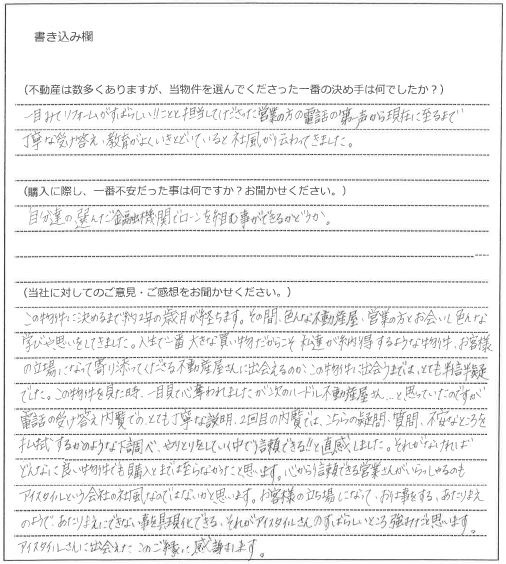 書き込み欄
（不動産は数多くありますが、当物件を選んでくださった一番の決め手は何でしたか？）
一目みてリフォームがすばらしい!!ことと担当してくださった営業の方の電話の第一声から現在に至るまで
丁寧な受け答え、教育がよくいきとどいていると社風が伝わってきました。
（購入に際し、一番不安だった事は何ですか？お聞かせください。）
自分達の選んだ金融機関でローンを組む事ができるかどうか。
（当社に対してのご意見・ご感想をお聞かせください。）
この物件に決めるまで約2年の歳月が経ちます。その間、色んな不動産屋、営業の方とお会いし色んな
学びや思いをしてきました。人生で一番大きな買い物だからこそ私達が納得するような物件、お客様
の立場になって寄り添ってくださる不動産屋さんに出会えるのか、この物件に出会うまでは、とても半信半疑
でした。この物件を見た時、一目見て心奪われましたが次のハードル不動産屋さん…と思っていたのですが
電話の受け答え、内覧での、とても丁寧な説明、2回目の内覧では、こちらの疑問、質問、不安なところを
払拭するかのような下調べ、やりとりをしていく中で信頼できる!!と直感しました。それがなければ
どんなに良い物件でも購入とまでは至らなかったと思います。心から信頼できる営業さんがいらっしゃるのも
アイスタイルという会社の社風なのではないかと思います。お客様の立場になって、お仕事をする、あたりまえ
のようで、あたりまえにできない事を具現化できる、それがアイスタイルさんのすばらしいところ強みだと思います。
アイスタイルさんに出会えたこのご縁に感謝します。